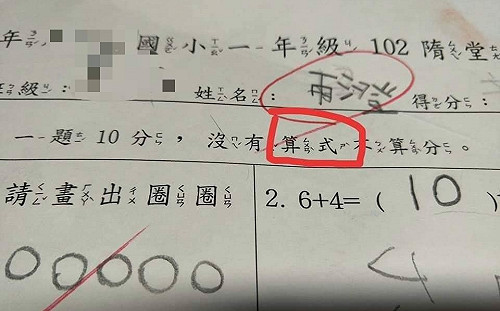 年 國小一年級 102 隋堂
級： 姓名： 得分：
一題 10 分，沒有算式不算分。
請畫出圈圈
2. 6+4=( 10 )